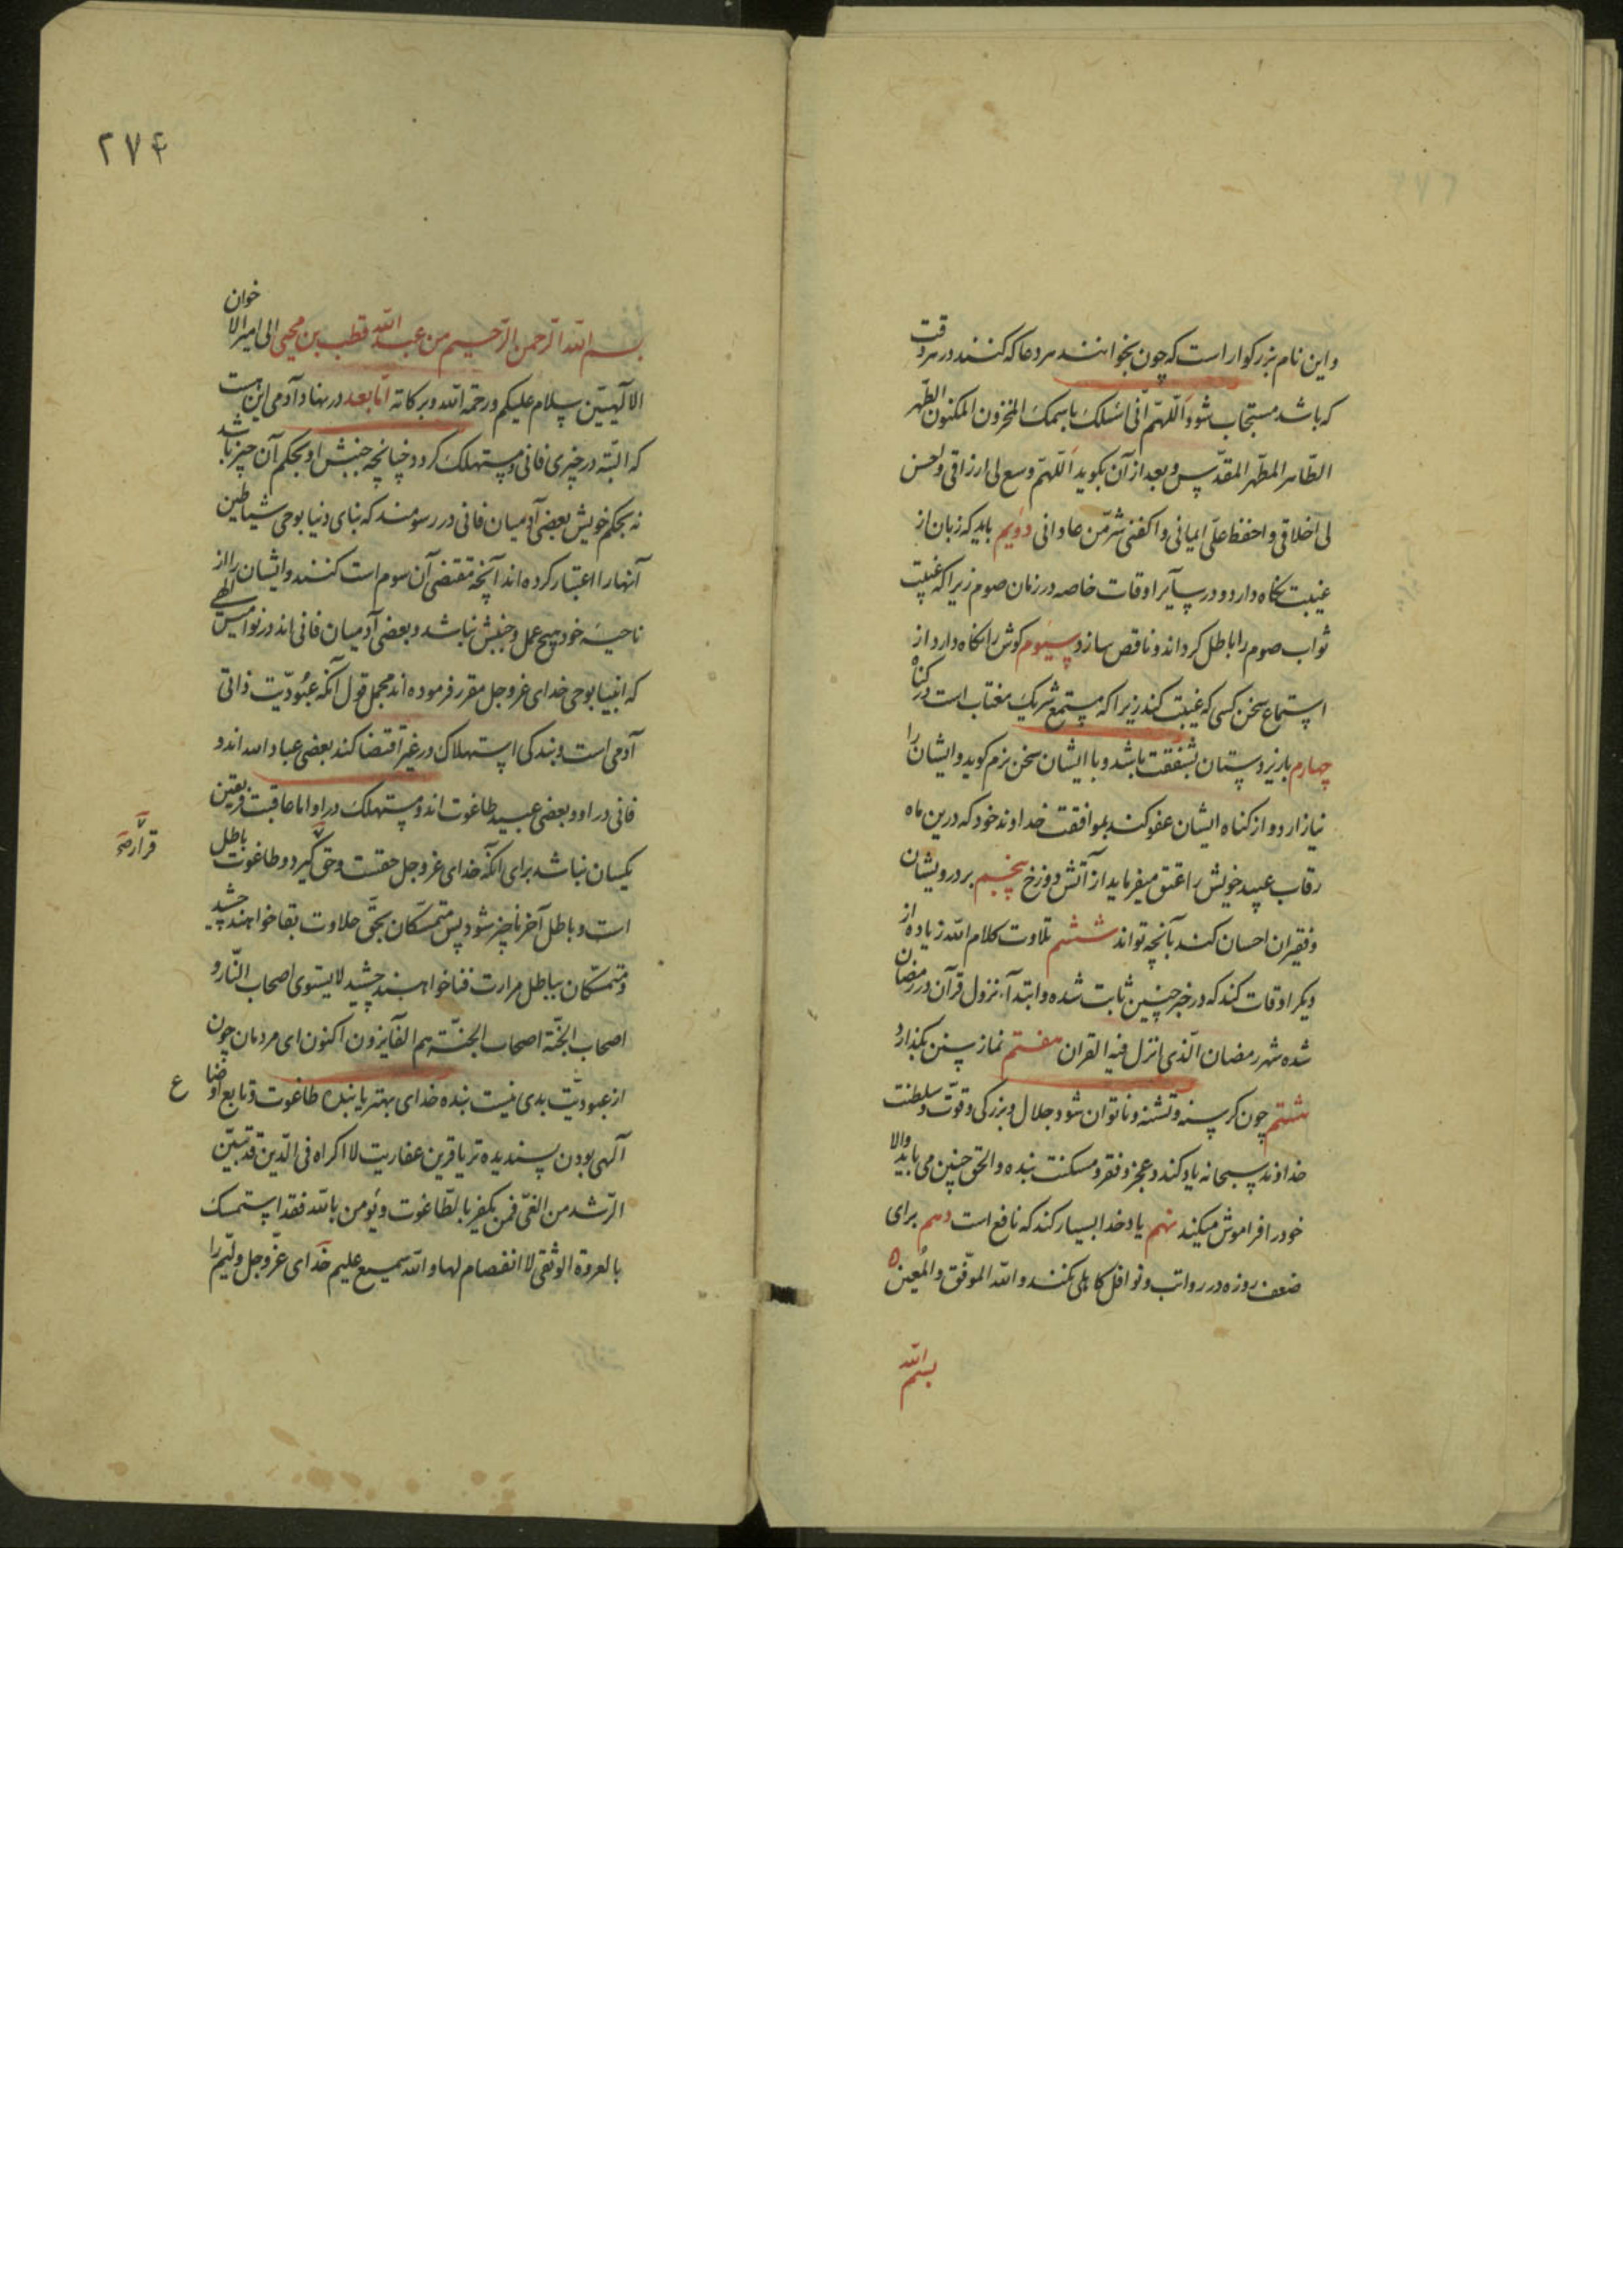 و این نام بزرکوار است که چون بخوانند هر دعا که کنند در هر وقت
که باشد مستجاب شود اللّهمّ انی اسٔلک باسمک المخزون المکنون الطّهر
الطّاهر المطّهر المقدّس و بعد از آن بکوید اللّهمّ وسع لی ارزاقی و احسن
لی اخلاقی و احفظ علّی ایمانی و اکفنی شرّ من عادانی دویم باید که زبان از
غیبت نکاه دارد و در سآیر اوقات خاصه در زمان صوم زیرا که غیبت
ثواب صوم را باطل کرداند و ناقص سازد سیوم کوش را نکاه دارد از
استماع سخن کسی که غیبت کند زیرا که مستمع شریک مغتاب است در کناه
چهارم با زیردستان بشفقت باشد و با ایشان سخن نرم کوید و ایشان را
نیازارد و از کناه ایشان عفو کند بموافقت خداوند خود که درین ماه
رقاب عبید خویش را عتق میفرماید از آتش دوزخ پنجم بر درویشان
و فقیران احسان کند بآنچه تواند ششم تلاوت کلام الله زیاده از
دیکر اوقات کند که در خبر چنین ثابت شده و ابتدآء نزول قرآن در رمضان
شده شهر رمضان الّذی انزل فیه القران هفتم نماز سنن بکذارد
هشتم چون کرسنه و تشنه و ناتوان شود جلال و بزرکی و قوّت و سلطنت
خداوند سبحانه یاد کند و عجز و فقر و مسکنت بنده و الحق چنین می باید والا
خود را فراموش میکند نهم یاد خدا بسیار کند که نافع است دهم برای
ضعف روزه در رواتب و نوافل کاهلی نکنند و الله الموفّق و المُعین ٥
بسم الله
٢٧۴
بسم الله الرّحمن الرّحیم من عبد الله قطب بن محیی الی امیر الاخوان
الآلٓهیّین سلام علیکم و رحمة الله و برکاته امّا بعد در نهاد آدمی این هست
که البتّه در چیزی فانی و مستهلک کردد چنانچه جنبش او بحکم آن چیز باشد
نه بحکم خویش بعضی آدمیان فانی در رسومند که بنای دنیا بوحی شیاطین
آنها را اعتبار کرده اند آنچه مقتضی آن رسوم است کنند و ایشان را از
ناحیهٔ خود هیچ عمل و جنبش نباشد و بعضی آدمیان فانی اند در نوامیس الٓهی
که انبیا بوحی خدای عزوجل مقرر فرموده اند مجمل قول آنکه عبُودیّت ذاتی
آدمی است و بندکی استهلاک در غیر اقتضا کند بعضی عباد الله اند و
فانی در او و بعضی عبید طاغوت اند و مستهلک در او اما عاقبت فریقین
یکسان نباشد برای آنکه خدای عزوجل حقست و حق کیرد و طاغوت باطل
قرار صح
است و باطل آخر ناچیز شود پس متمسّکان بحّق حلاوت بقا خواهند چشید
و متمسّکان بباطل مرارت فنا خواهند چشید لا یستوی اصحاب النّار و
اصحاب الجنّة اصحاب الجنّة هم الفآیزون اکنون ای مردمان چون
از عبودیّت بدی نیست بنده خدای بهتر یا بنده طاغوت و تابع اوضاع
آلٓهی بودن پسندیده تر یا قرین عفاریت لا اکراه فی الدّین قد تبیّن
الرّشد من الغیّ فمن یکفر بالطّاغوت و یؤمن بالله فقد استمسک
بالعروة الوثقی لا انفصام لها و الله سمیع علیم خدای عزّوجل ولیّم را